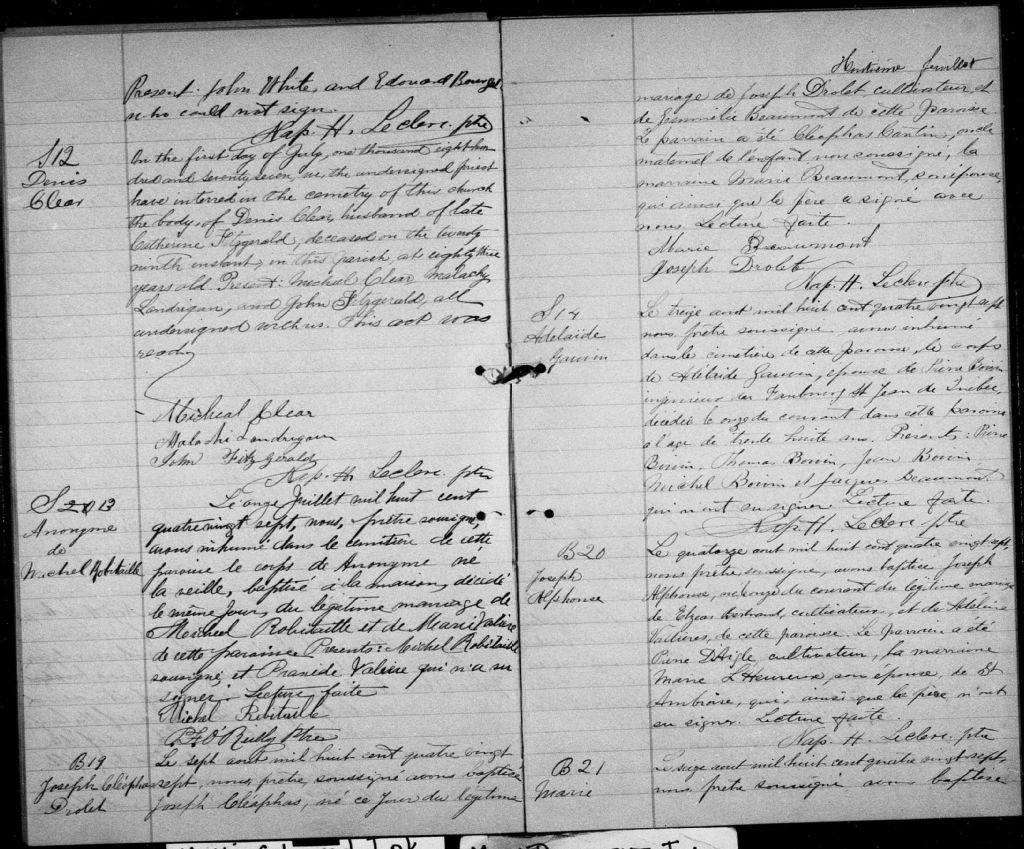 Present: John White, and Edouard
who could not sign.
Nap. H. Leclerc ptre
S12
Denis
Clear
On the first day of July, one thousand eight hun
dred and seventy seven, we, the undersigned priest
have interred in the cemetry of this church
the body of Denis Clear, husband of late
Catherine Fitzgerald, deceased on the twenty
ninth instant, in this parish, at eighty three
years old. Present: Micheal Clear Malachy
Landrigan, and John Fitzgerald, all
undersigned with us. This act was
read
Micheal Clear
Malachi Landrigan
John FitzGerald
Nap. H. Leclerc ptre
S 13
Anonyme
de
Michel Robitaille
Le onze Juillet mil huit cent
quatre vingt sept, nous, prêtre sousigné,
avons inhumé dans le cimetière de cette
paroisse le corps de Anonyme né
la veille, baptisé à la maison, décédé
le même jour, du légitime mariage de
Micheal Robitaille et de Marie Valière
de cette paroisse Presents: Michel Robitaille
sousigné, et Praxède Valière qui n'a su
signer. Lecture faite
Michel Robitaille
O'Reilly Ptre
B19
Joseph Cléophas
Drolet
Le sept aout mil huit cent quatre vingt
sept, nous, prêtre soussigné avons baptisé
Joseph Cléophas, né ce jour du légitime
Huitième feuillet
mariage de Joseph Drolet cultivateur, et
de Beaumont de cette paroisse.
Le parrain a été Cléophas Cantin, oncle
maternel de l'enfant non soussigné, la
marraine Marie Beaumont, son épouse,
qui ainsi que le père a signé avec
nous. Lecture faite.
Marie Beaumont
Joseph Drolet
Nap. H. Leclerc ptre
S14
Adelaïde
Gauvin
Le treize aout mil huit cent quatre vingt sept
nous prêtre soussigné avons inhumé
dans le cimetière de cette paroisse, le corps
de Adélaïde Gauvin, épouse de Pierre Boivin
ingénieur du Faubourg St Jean de Québec,
décédée le onze du courant dans cette paroisse
a l'age de trente huite ans. Présents: Pierre
Boivin, Thomas Boivin, Jean Boivin
Michel Boivin et Jacques Beaumont
qui n'ont su signer Lecture faite.
Nap. H. Leclerc ptre
B20
Joseph
Alphonse
Le quatorze aout mil huit cent quatre vingt sept,
nous prêtre soussigné, avons baptisé Joseph
Alphonse, né onze du courant du légitime mariage
de Elzear Bertrand, cultivateur, et de Adeline
Vallières, de cette paroisse. Le parrain a été
Pierre D'Aigle cultivateur, la marraine
Marie L'Heureux, son épouse, de St
Ambroise, qui, ainsi que le père n'ont
su signer. Lecture faite.
Nap. H. Leclerc ptre
B21
Marie
Le seize aout mil huit cent quatre vingt sept,
nous prêtre soussigné avons baptisé